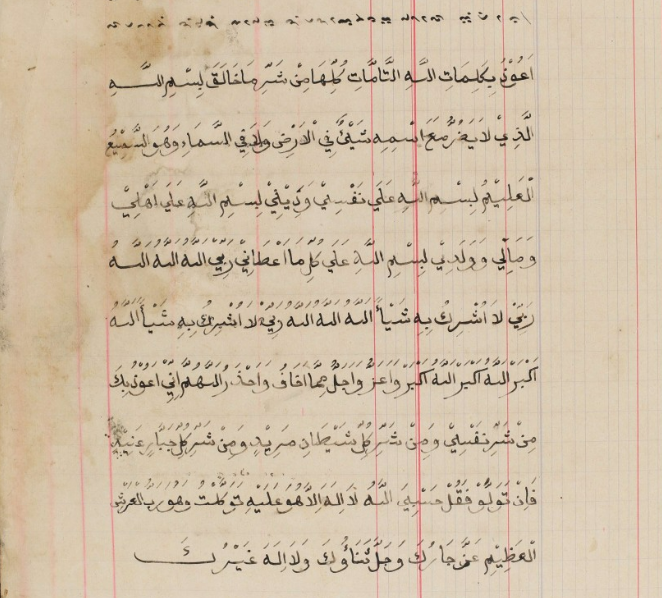 اَعُوْذُ بِكَلِمَاتِ اللهِ التَّامَّاتِ كُلِّهَا مِنْ شَرِّ مَا خَلَقَ بِسْمِ اللهِ
الَّذِيْ لَا يَضُرُّ مَعَ اسْمِهِ شَيْئٌ فِي الْاَرْضِ وَلَا فِي السَّمَاءِ وَهُوَ السَّمِيْعُ
الْعَلِيْمُ بِسْمِ اللهِ عَلَي نَفْسِيْ وَدِيْنِيْ بِسْمِ اللهِ عَلَي اَهْلِيْ
وَمَالِي وَوَلَدِيْ بِسْمِ اللهِ عَلَي كُلِّ مَا اَعْطَانِيْ رَبِّي اللهُ اللهُ اللهُ
رَبِّيْ لَا اُشْرِكُ بِهِ شَيْأً اللهُ اللهُ اللهُ رَبِّيْ لَا اُشْرِكُ بِهِ شَيْأً اللهُ
اَكْبَرْ اللهُ اَكْبَرْ اللهُ اَكْبَرْ وَاَعَزُّ وَاَجَلُّ مِمَّا اَخَافُ وَاَحْذَرُ اَللّهُمَّ اِنِّيْ اَعُوْذُ بِكَ
مِنْ شَرِّ نَفْسِيْ وَمِنْ شَرِّ كُلِّ شَيْطَانٍ مَرِيْدٍ وَمِنْ شَرِّ كُلِّ جَبَّارٍ عَنِيْدٍ
فَاِنْ تَوَلَّوْ فَقُلْ حَسْبِيَ اللهُ لَا اِلٰهَ اِلَّا هُوَ عَلَيْهِ تَوَكَّلْتُ وَهُوَ رَبُّ الْعَرْشِ
الْعَظِيْمِ عَزَّ جَارُكَ وَجَلَّ ثَنَاؤُكَ وَلَا اِلٰهَ غَيْرُكَ